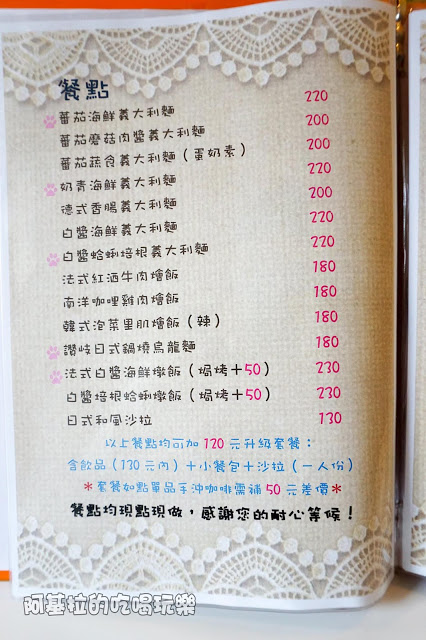 餐點
番茄海鮮義大利麵 220
番茄蘑菇肉醬義大利麵 200
番茄蔬食義大利麵（蛋奶素） 200
奶青海鮮義大利麵 220
德式香腸義大利麵 200
白醬海鮮義大利麵 220
白醬蛤蜊培根義大利麵 220
法式紅酒牛肉燴飯 180
南洋咖哩雞肉燴飯 180
韓式泡菜里肌燴飯（辣） 180
讚岐日式鍋燒烏龍麵 180
法式白醬海鮮燉飯（焗烤+50） 230
白醬培根蛤蜊燉飯（焗烤+50） 230
日式和風沙拉 130
以上餐點均可加 120 元升級套餐：
含飲品（130元內）+小餐包+沙拉（一人份）
＊套餐如點單品手沖咖啡需補 50 元差價＊
餐點均現點現做，感謝您的耐心等候！
阿基拉的吃喝玩樂